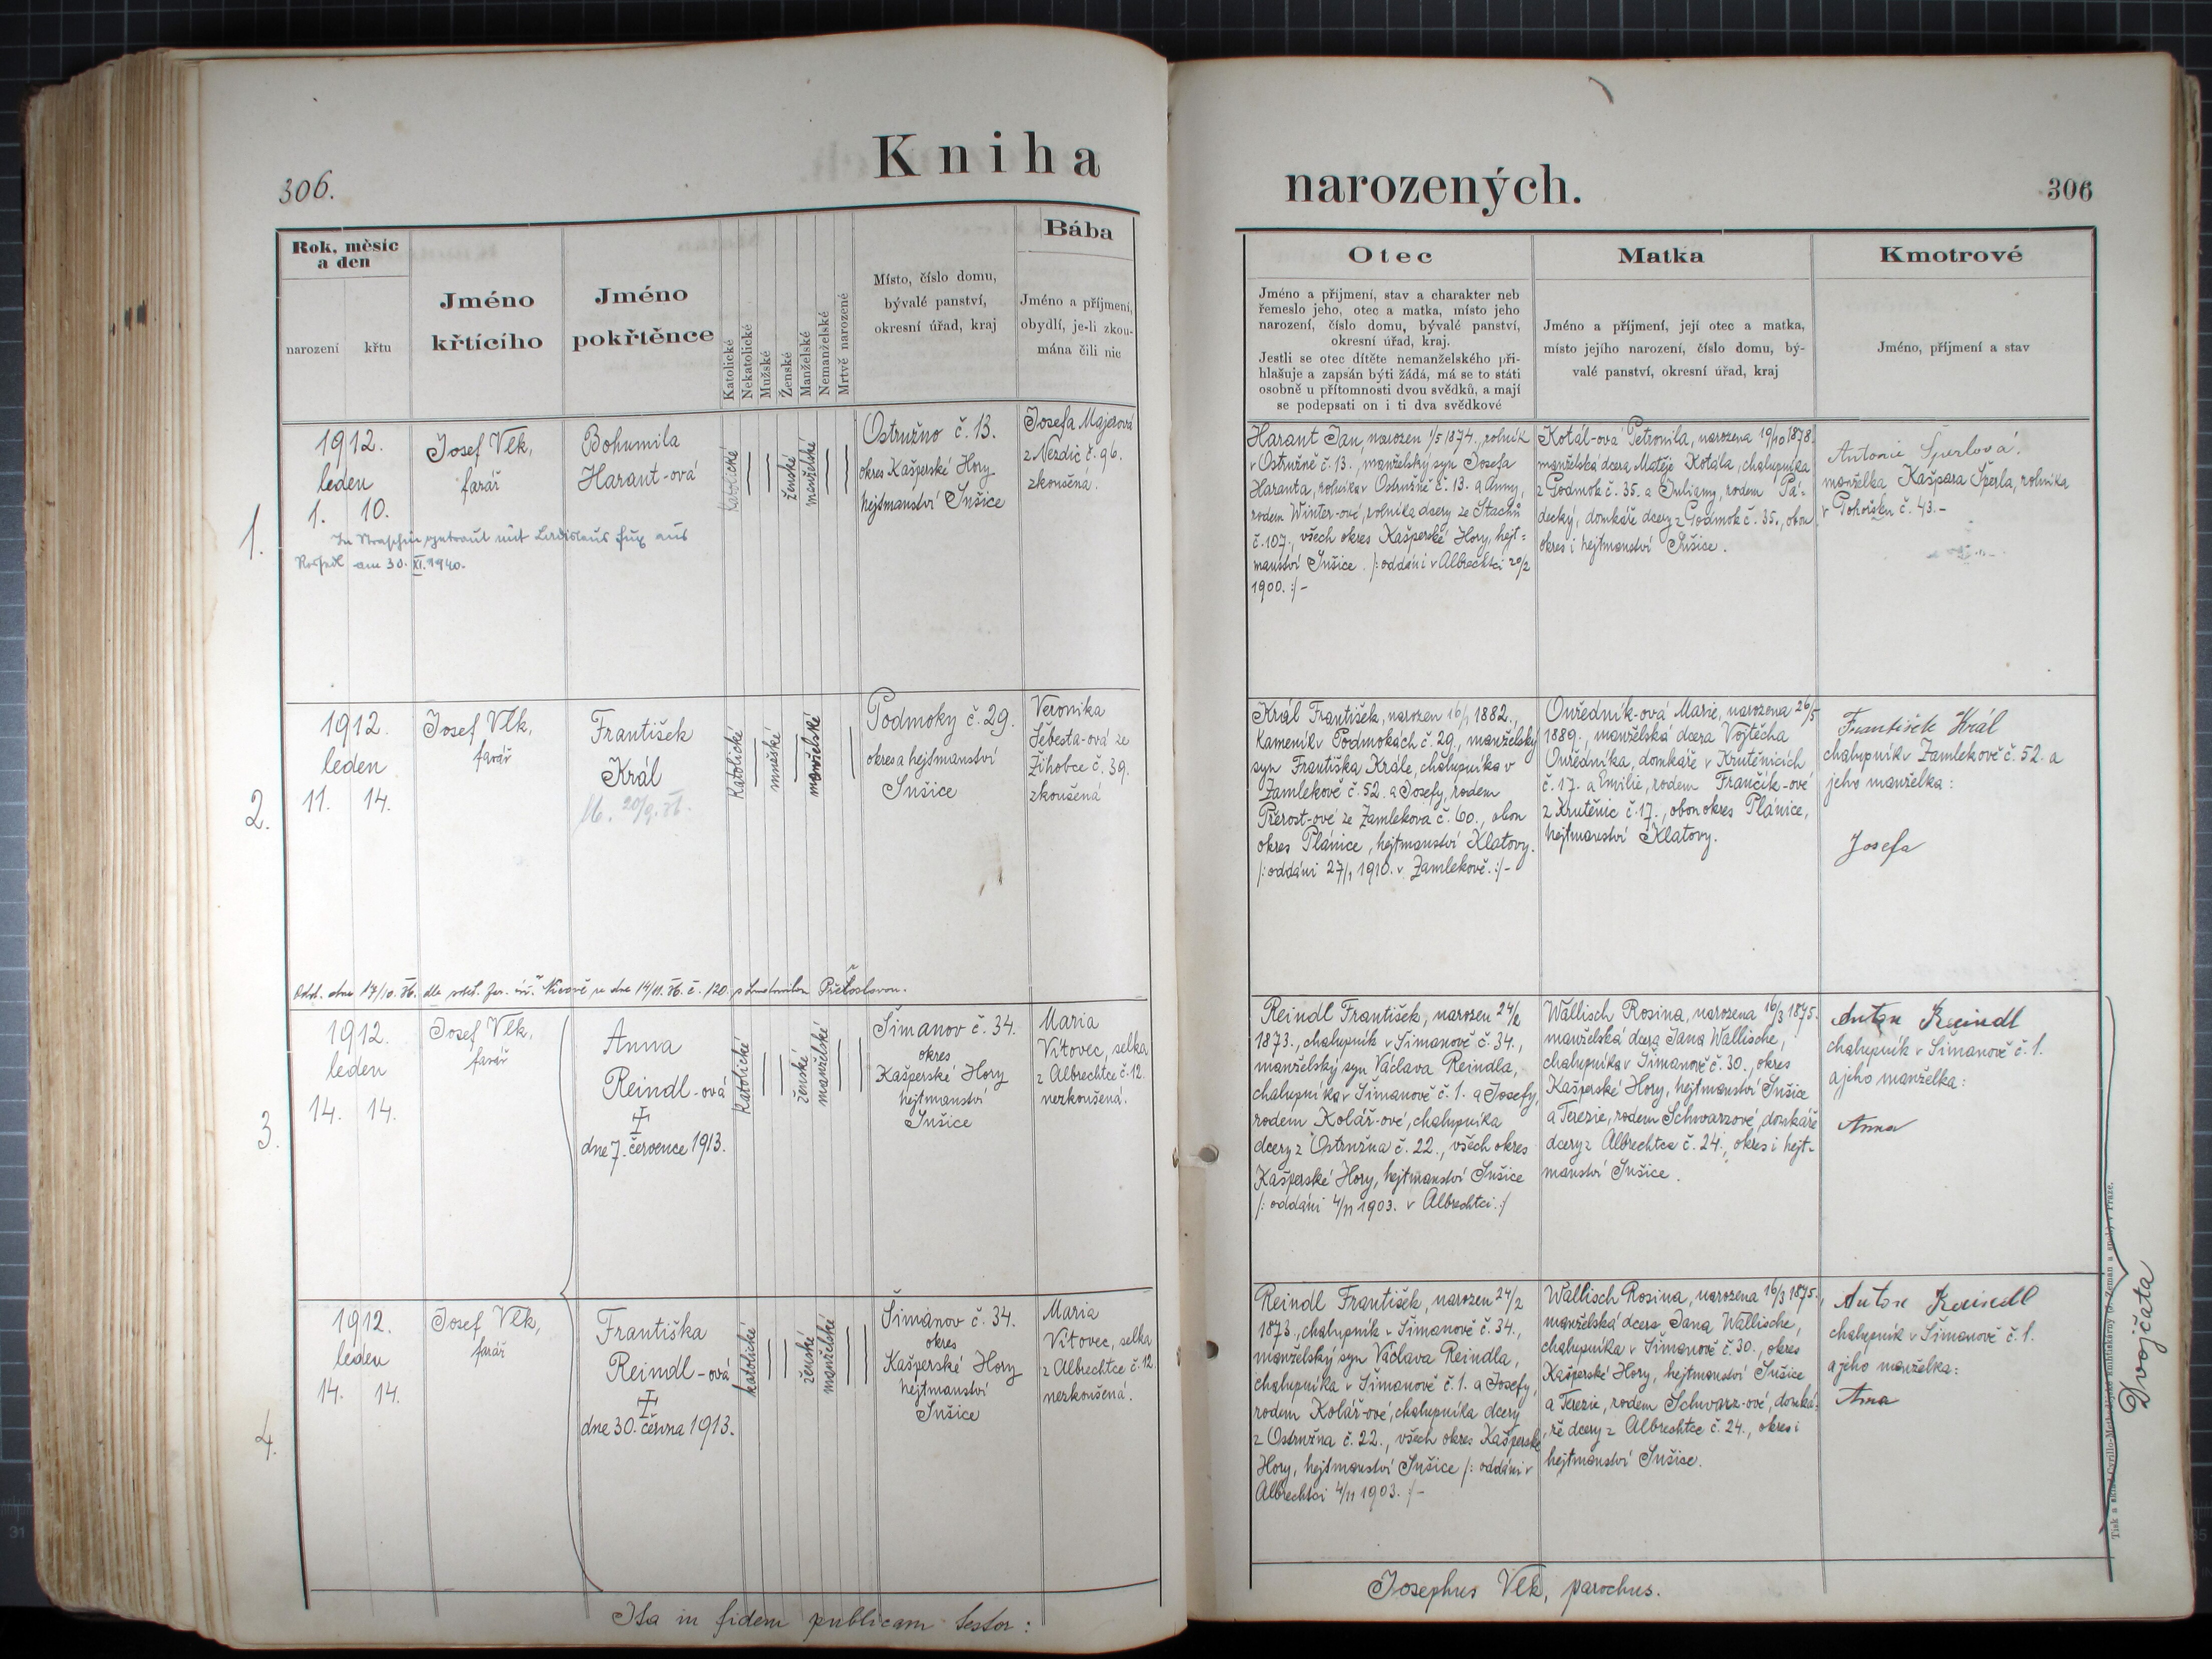 306.
Kniha
Rok, měsíc
a den
narození
křtu
Jméno
křtícího
Jméno
pokřtěnce
Katolické
Nekatolické
Mužské
Ženské
Manželské
Nemanželské
Mrtvě narozené
Místo, číslo domu,
bývalé panství,
okresní úřad, kraj
Bába
Jméno a příjmení,
obydlí, je-li zkou-
mána čili nic
1.
1912.
leden
1. 10.
Josef Vlk,
farář
Bohumila
Harant-ová
katolické
ženské
manželské
Ostružno č. 13.
okres Kašperské Hory
hejtmanství Sušice
Josefa Majerová
z Nezdic č. 96.
zkoušená.
am 30. XI. 1940.
2.
1912.
leden
11. 14.
Josef Vlk,
farář
František
Král
katolické
mužské
manželské
Podmoky č. 29.
okres a hejtmanství
Sušice
Veronika
Šebesta-ová ze
Žihobce č. 39.
zkoušená
Odd. dne 17/10. 36. dle
3.
1912.
leden
14. 14.
Josef Vlk,
farář
Anna
Reindl-ová
dne 7. července 1913.
katolické
ženské
manželské
Šimanov č. 34.
okres
Kašperské Hory
hejtmanství
Sušice
Maria
Vítovec, selka
z Albrechtce č. 12.
nezkoušená.
4.
1912.
leden
14. 14.
Josef Vlk,
farář
Františka
Reindl-ová
dne 30. června 1913.
katolické
ženské
manželské
Šimanov č. 34.
okres
Kašperské Hory
hejtmanství
Sušice
Maria
Vítovec, selka
z Albrechtce č. 12.
nezkoušená.
Ita in fidem publicam testor:
narozených.
306
Otec
Jméno a příjmení, stav a charakter neb
řemeslo jeho, otec a matka, místo jeho
narození, číslo domu, bývalé panství,
okresní úřad, kraj.
Jestli se otec dítěte nemanželského při-
hlašuje a zapsán býti žádá, má se to státi
osobně u přítomnosti dvou svědků, a mají
se podepsati on i ti dva svědkové
Matka
Jméno a příjmení, její otec a matka,
místo jejího narození, číslo domu, bý-
valé panství, okresní úřad, kraj
Kmotrové
Jméno, příjmení a stav
Harant Jan, narozen 1/5 1874., rolník
v Ostružně č. 13., manželský syn Josefa
Haranta, rolníka v Ostružně č. 13. a Anny,
rodem Winter-ové, rolníka dcery ze Stachů
č. 107., všech okres Kašperské Hory, hejt=
manství Sušice. /: oddáni v Albrechtci 20/2
1900. :/-
Kotál-ová Petronila, narozena 19/10 1878.
manželská dcera Matěje Kotála, chalupníka
z Podmok č. 35. a Juliany, rodem Pa-
decký, domkáře dcery z Podmok č. 35., obou
okres i hejtmanství Sušice.
Antonie Šperlová.
manželka Kašpara Šperla, rolníka
v Pohorsku č. 43.-
Král František, narozen 16/1 1882.,
kameník v Podmokách č. 29., manželský
syn Františka Krále, chalupníka v
Zamlekově č. 52. a Josefy, rodem
Přerost-ové ze Zamlekova č. 60., obou
okres Plánice, hejtmanství Klatovy.
/: oddáni 27/1 1910. v Zamlekově. :/-
Ouředník-ová Marie, narozena 26/5
1889., manželská dcera Vojtěcha
Ouředníka, domkáře v Krutěnicích
č. 17. a Emilie, rodem Frančík-ové
z Krutěnic č. 17., obou okres Plánice,
hejtmanství Klatovy.
František Král
chalupník v Zamlekově č. 52. a
jeho manželka:
Josefa
Reindl František, narozen 24/2
1873., chalupník v Šimanově č. 34.,
manželský syn Václava Reindla,
chalupníka v Šimanově č. 1. a Josefy,
rodem Kolář-ové, chalupníka
dcery z Ostružna č. 22., všech okres
Kašperské Hory, hejtmanství Sušice
/: oddáni 4/11 1903. v Albrechtci. :/
Wallisch Rosina, narozena 16/3 1875.
manželská dcera Jana Wallische,
chalupníka v Šimanově č. 30., okres
Kašperské Hory, hejtmanství Sušice
a Terezie, rodem Schwarzové, domkáře
dcery z Albrechtce č. 24., okres i hejt-
manství Sušice.
Anton Reindl
chalupník v Šimanově č. 1.
a jeho manželka:
Anna
Reindl František, narozen 24/2
1873., chalupník v Šimanově č. 34.,
manželský syn Václava Reindla,
chalupníka v Šimanově č. 1. a Josefy,
rodem Kolář-ové, chalupníka dcery
z Ostružna č. 22., všech okres Kašperské
Hory, hejtmanství Sušice /: oddáni v
Albrechtci 4/11 1903. :/-
Wallisch Rosina, narozena 16/3 1875.,
manželská dcera Jana Wallische,
chalupníka v Šimanově č. 30., okres
Kašperské Hory, hejtmanství Sušice
a Terezie, rodem Schwarz-ové, domká-
ře dcery z Albrechtce č. 24., okres i
hejtmanství Sušice.
Anton Reindl
chalupník v Šimanově č. 1.
a jeho manželka:
Anna
Dvojčata
Josephus Vlk, parochus.